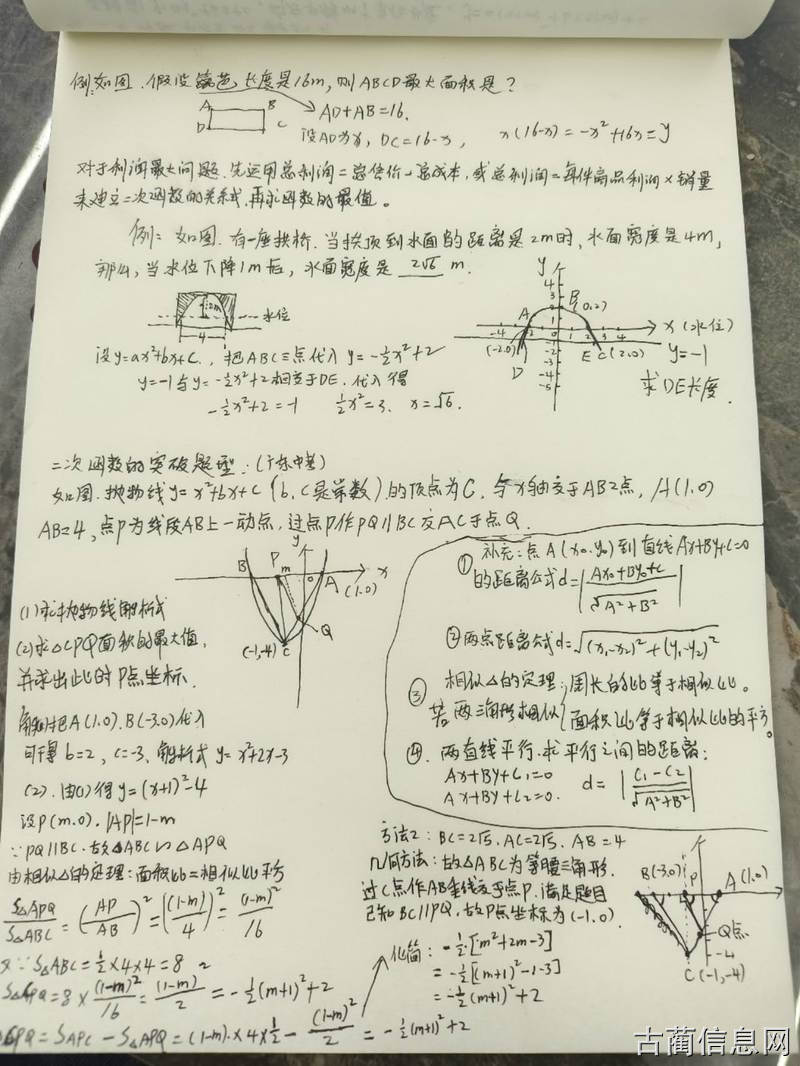 例:如图.假设篱笆长度是16m,则ABCD最大面积是?
A B
D C
AD+AB=16.
设AD为x, DC=16-x, x(16-x)=-x²+16x=y
对于利润最大问题.先运用总利润=总售价-总成本,或总利润=每件商品利润×销量
来建立二次函数的关系式,再求函数的最值。
例:如图.有一座拱桥.当拱顶到水面的距离是2m时,水面宽度是4m,
那么,当水位下降1m后,水面宽度是 2√6 m.
2m 水位
4
设y=ax²+bx+c.,把ABC三点代入 y=-½x²+2
y=-1与y=-½x²+2相交于DE.代入得
-½x²+2=-1 ½x²=3. x=√6.
y
B(0,2)
A
x(水位)
(-2,0) E C(2,0) y=-1
D
求DE长度.
二次函数的突破题型:(广东中考)
如图.抛物线y=x²+bx+c(b,c是常数)的顶点为C.与x轴交于AB2点,A(1,0)
AB=4,点P为线段AB上一动点,过点P作PQ∥BC交AC于点Q.
y
B P m 0 A x
(1,0)
Q
(-1,-4) C
(1)求抛物线解析式
(2)求△CPQ面积的最大值,
并求出此时P点坐标.
解:(1)把A(1,0).B(-3,0)代入
可得b=2,c=-3,解析式y=x²+2x-3
(2).由(1)得y=(x+1)²-4
设P(m,0).|AP|=1-m
∵PQ∥BC.故△ABC∽△APQ
由相似△的定理:面积比=相似比平方
S△APQ/S△ABC=(AP/AB)²=((1-m)/4)²=(1-m)²/16
又∵S△ABC=½×4×4=8
S△APQ=8×(1-m)²/16=(1-m)²/2=-½(m+1)²+2
CPQ=S△APC-S△APQ=(1-m)×4×½-(1-m)²/2=-½(m+1)²+2
补充:点A(x₀,y₀)到直线Ax+By+c=0
①的距离公式d=|(Ax₀+By₀+c)/√(A²+B²)|
②两点距离公式d=√((x₁-x₂)²+(y₁-y₂)²)
相似△的定理:周长的比等于相似比。
③若两三角形相似{面积比等于相似比的平方。
④.两直线平行.求平行之间的距离:
Ax+By+C₁=0
Ax+By+C₂=0. d=|(C₁-C₂)/√(A²+B²)|
方法2:BC=2√5,AC=2√5,AB=4
几何方法:故△ABC为等腰三角形.
过C点作AB垂线交于点P.满足题目
已知BC∥PQ.故P点坐标为(-1,0).
B(-3,0) P A(1,0)
Q点
-4
C(-1,-4)
化简:-½[m²+2m-3]
=-½[(m+1)²-1-3]
=-½(m+1)²+2
古蔺信息网